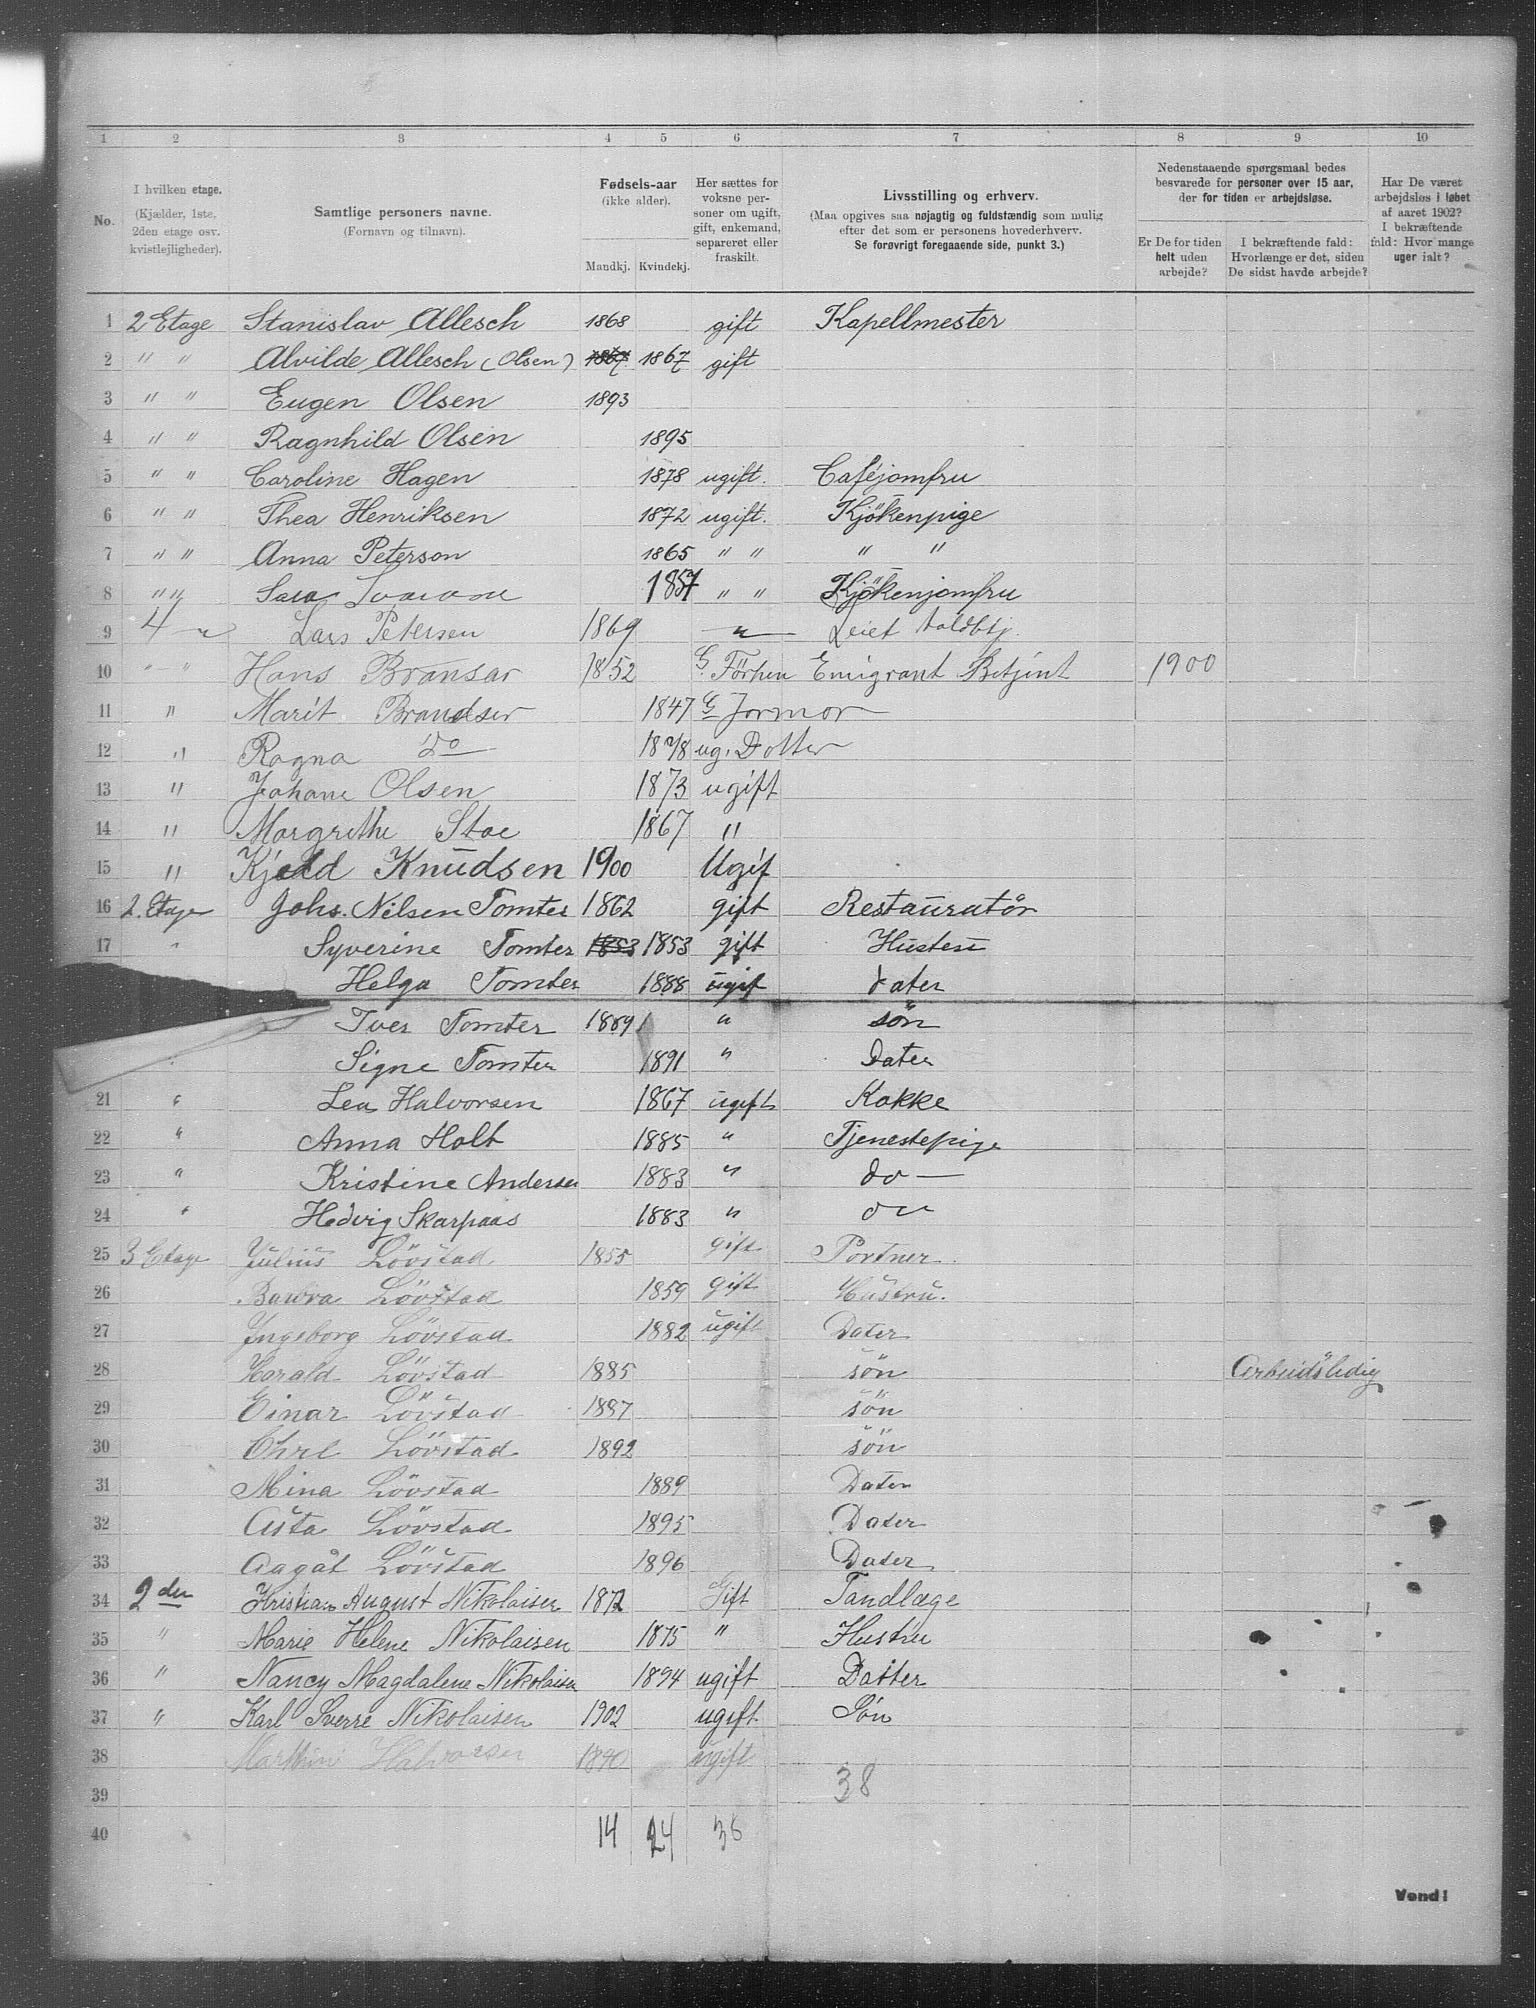 1 2 3 4 5 6 7 8 9 10
No.
I hvilken etage. (Kjælder, 1ste, 2den etage osv. kvistlejligheder).
Samtlige personers navne. (Fornavn og tilnavn).
Fødsels-aar (ikke alder). Mandkj. Kvindekj.
Her sættes for voksne personer om ugift, gift, enkemand, separeret eller fraskilt.
Livsstilling og erhverv. (Maa opgives saa nøjagtig og fuldstændig som mulig efter det som er personens hovederhverv. Se forøvrigt foregaaende side, punkt 3.)
Nedenstaaende spørgsmaal bedes besvarede for personer over 15 aar, der for tiden er arbejdsløse.
Er De for tiden helt uden arbejde?
I bekræftende fald: Hvorlænge er det, siden De sidst havde arbejde?
Har De været arbejdsløs i løbet af aaret 1902? I bekræftende fald: Hvor mange uger ialt?
1 2 Etage Stanislav Allesch 1868 gift Kapellmester
2 " " Alvilde Allesch (Olsen) 1867 1867 gift
3 " " Eugen Olsen 1893
4 " " Ragnhild Olsen 1895
5 " " Caroline Hagen 1878 ugift. Caféjomfru
6 " " Thea Henriksen 1872 ugift. Kjökenpige
7 " " Anna Peterson 1865 " " " "
8 " " Sara 1857 " " Kjökenjomfru
9 4 " Lars Petersen 1869 " Leiet
10 " " Hans Bransar 1852 G. Förhen Emigrant Betjent 1900
11 " Marit Brandser 1847 G Jormor
12 " Ragna do 1878 ug. Dotter
13 " Johane Olsen 1873 ugift
14 " Margrethe Stoe 1867 "
15 " Kjeld Knudsen 1900 Ugif
16 2. Etage Johs. Nilsen Tomter 1862 gift Restauratör
17 " Syverine Tomter 1853 1853 gift Hustru
Helga Tomter 1888 ugif dater
Iver Tomter 1889 " sön
Signe Tomter 1891 " Dater
21 " Lea Halvorsen 1867 ugift Kokke
22 " Anna Holt 1885 " Tjenestepige
23 " Kristine Andersen 1883 " do —
24 " Hedvig Skarpaas 1883 "
25 3 Etage Julius Lövstad 1855 gift Portner.
26 Lövstad 1859 gift Hustru.
27 Ingeborg Lövstad 1882 ugift Dater
28 Harald Lövstad 1885 sön Arbeidsledig
29 Einar Lövstad 1887 sön
30 Lövstad 1892 sön
31 Mina Lövstad 1889 Dater
32 Asta Lövstad 1895 Dater
33 Aagåt Lövstad 1896 Dater
34 2den Kristian August Nikolaisen 1872 Gift Tandlæge
35 " Marie Helene Nikolaisen 1875 " Hustru
36 " Nancy Magdalene Nikolaisen 1894 ugift Datter
37 " Karl Sverre Nikolaisen 1902 ugift Sön
38 Marthine Halvorsen 1890 ugift
39 38
40 14 24 38
Vend!